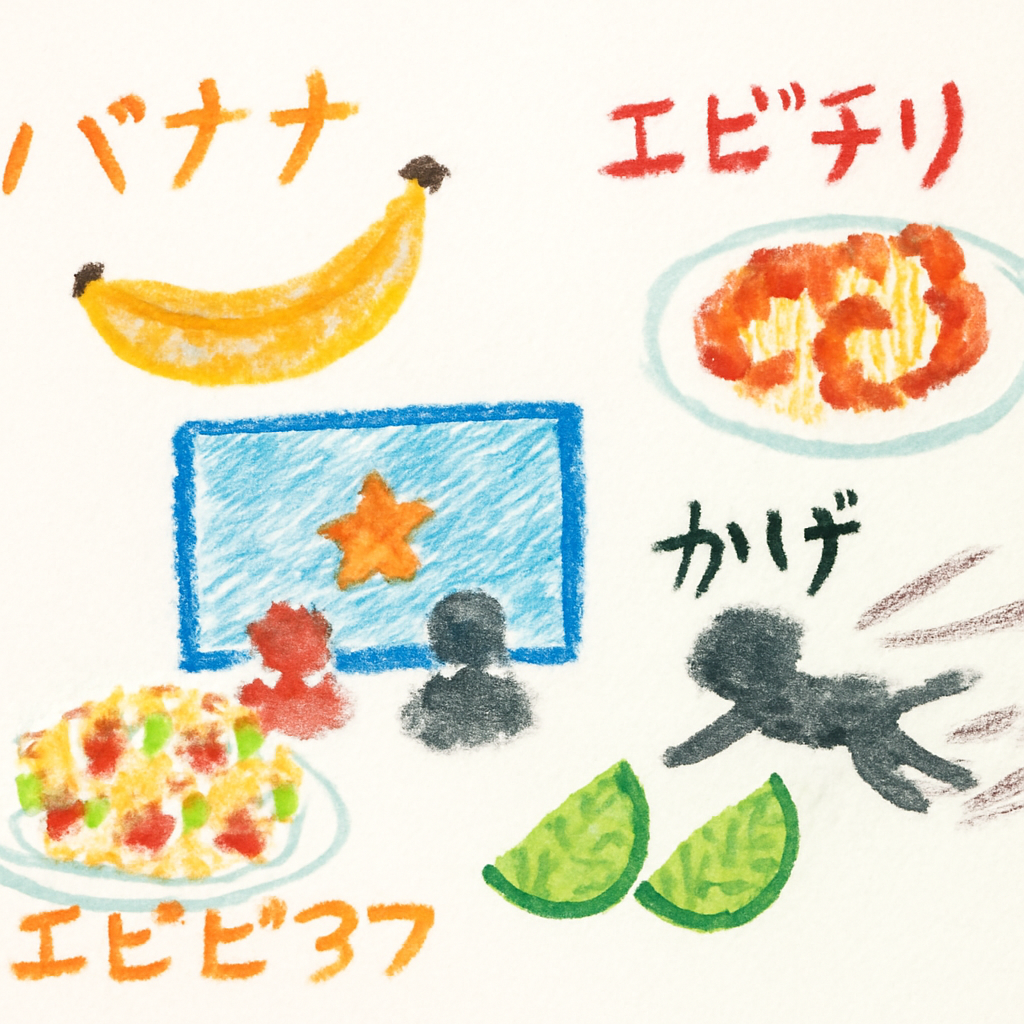 バナナ
エビチリ
かげ
エビビ37